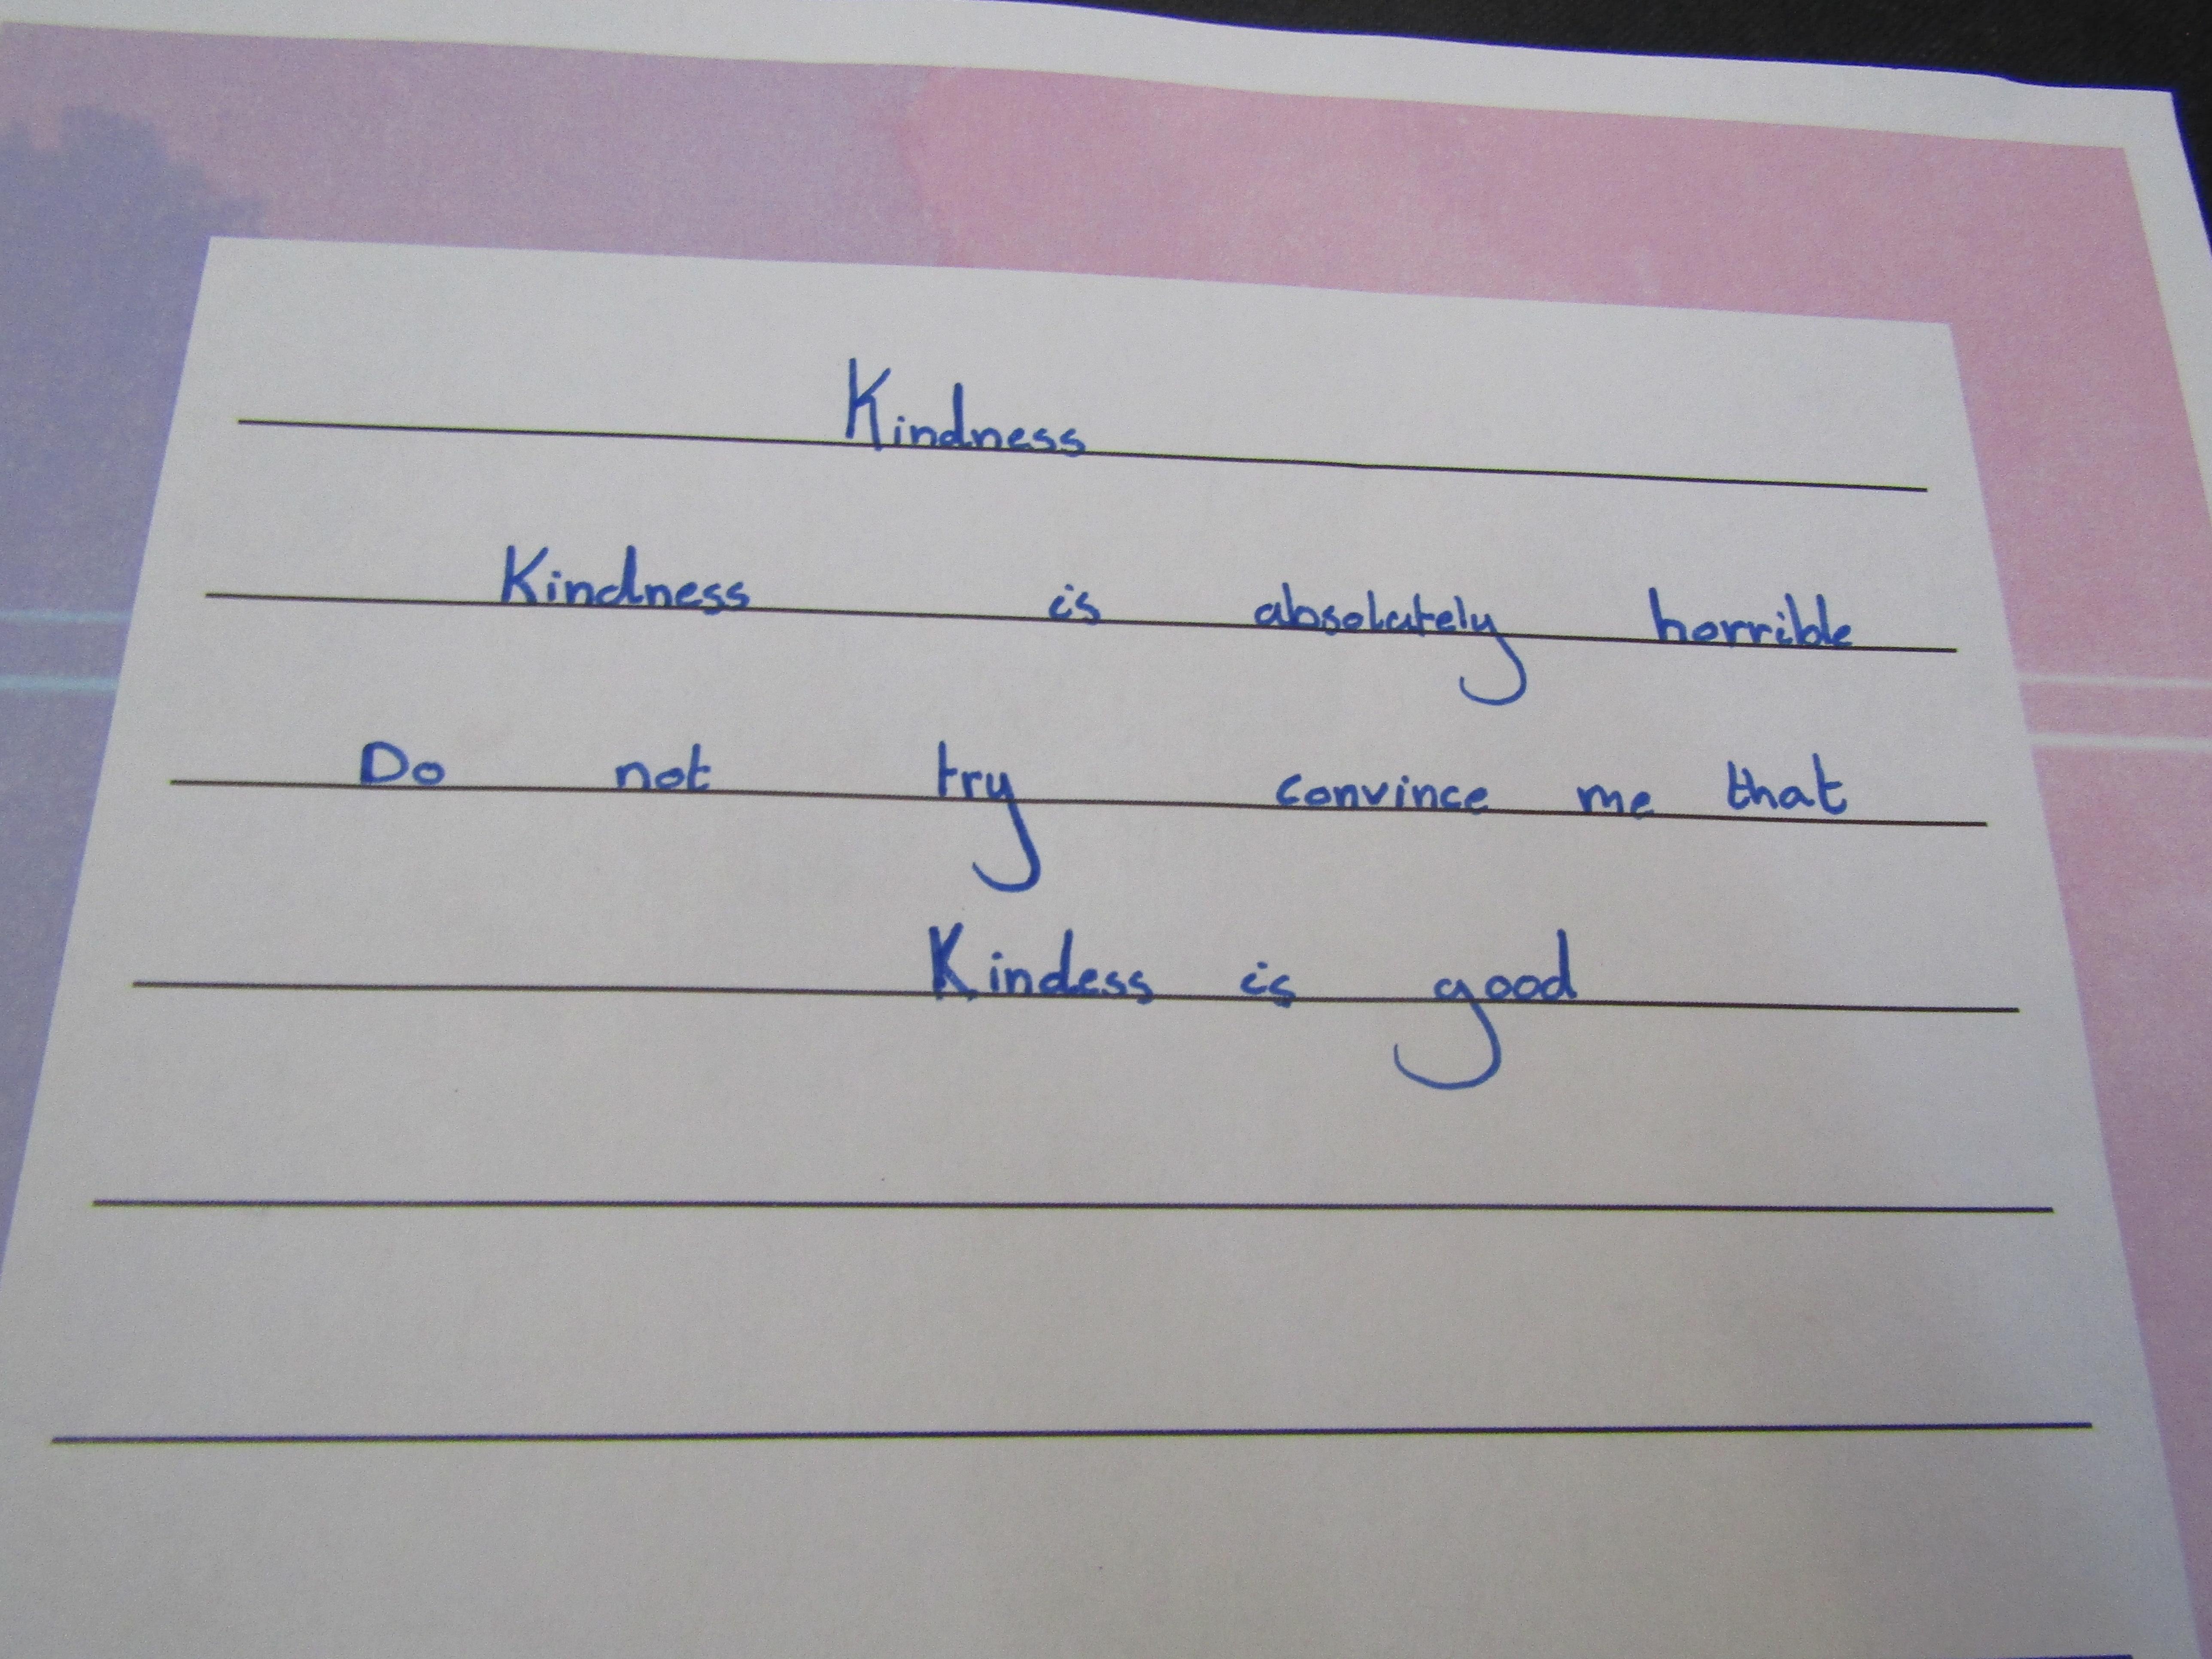 Kindness
Kindness is absolutely horrible
Do not try convince me that
Kindess is good